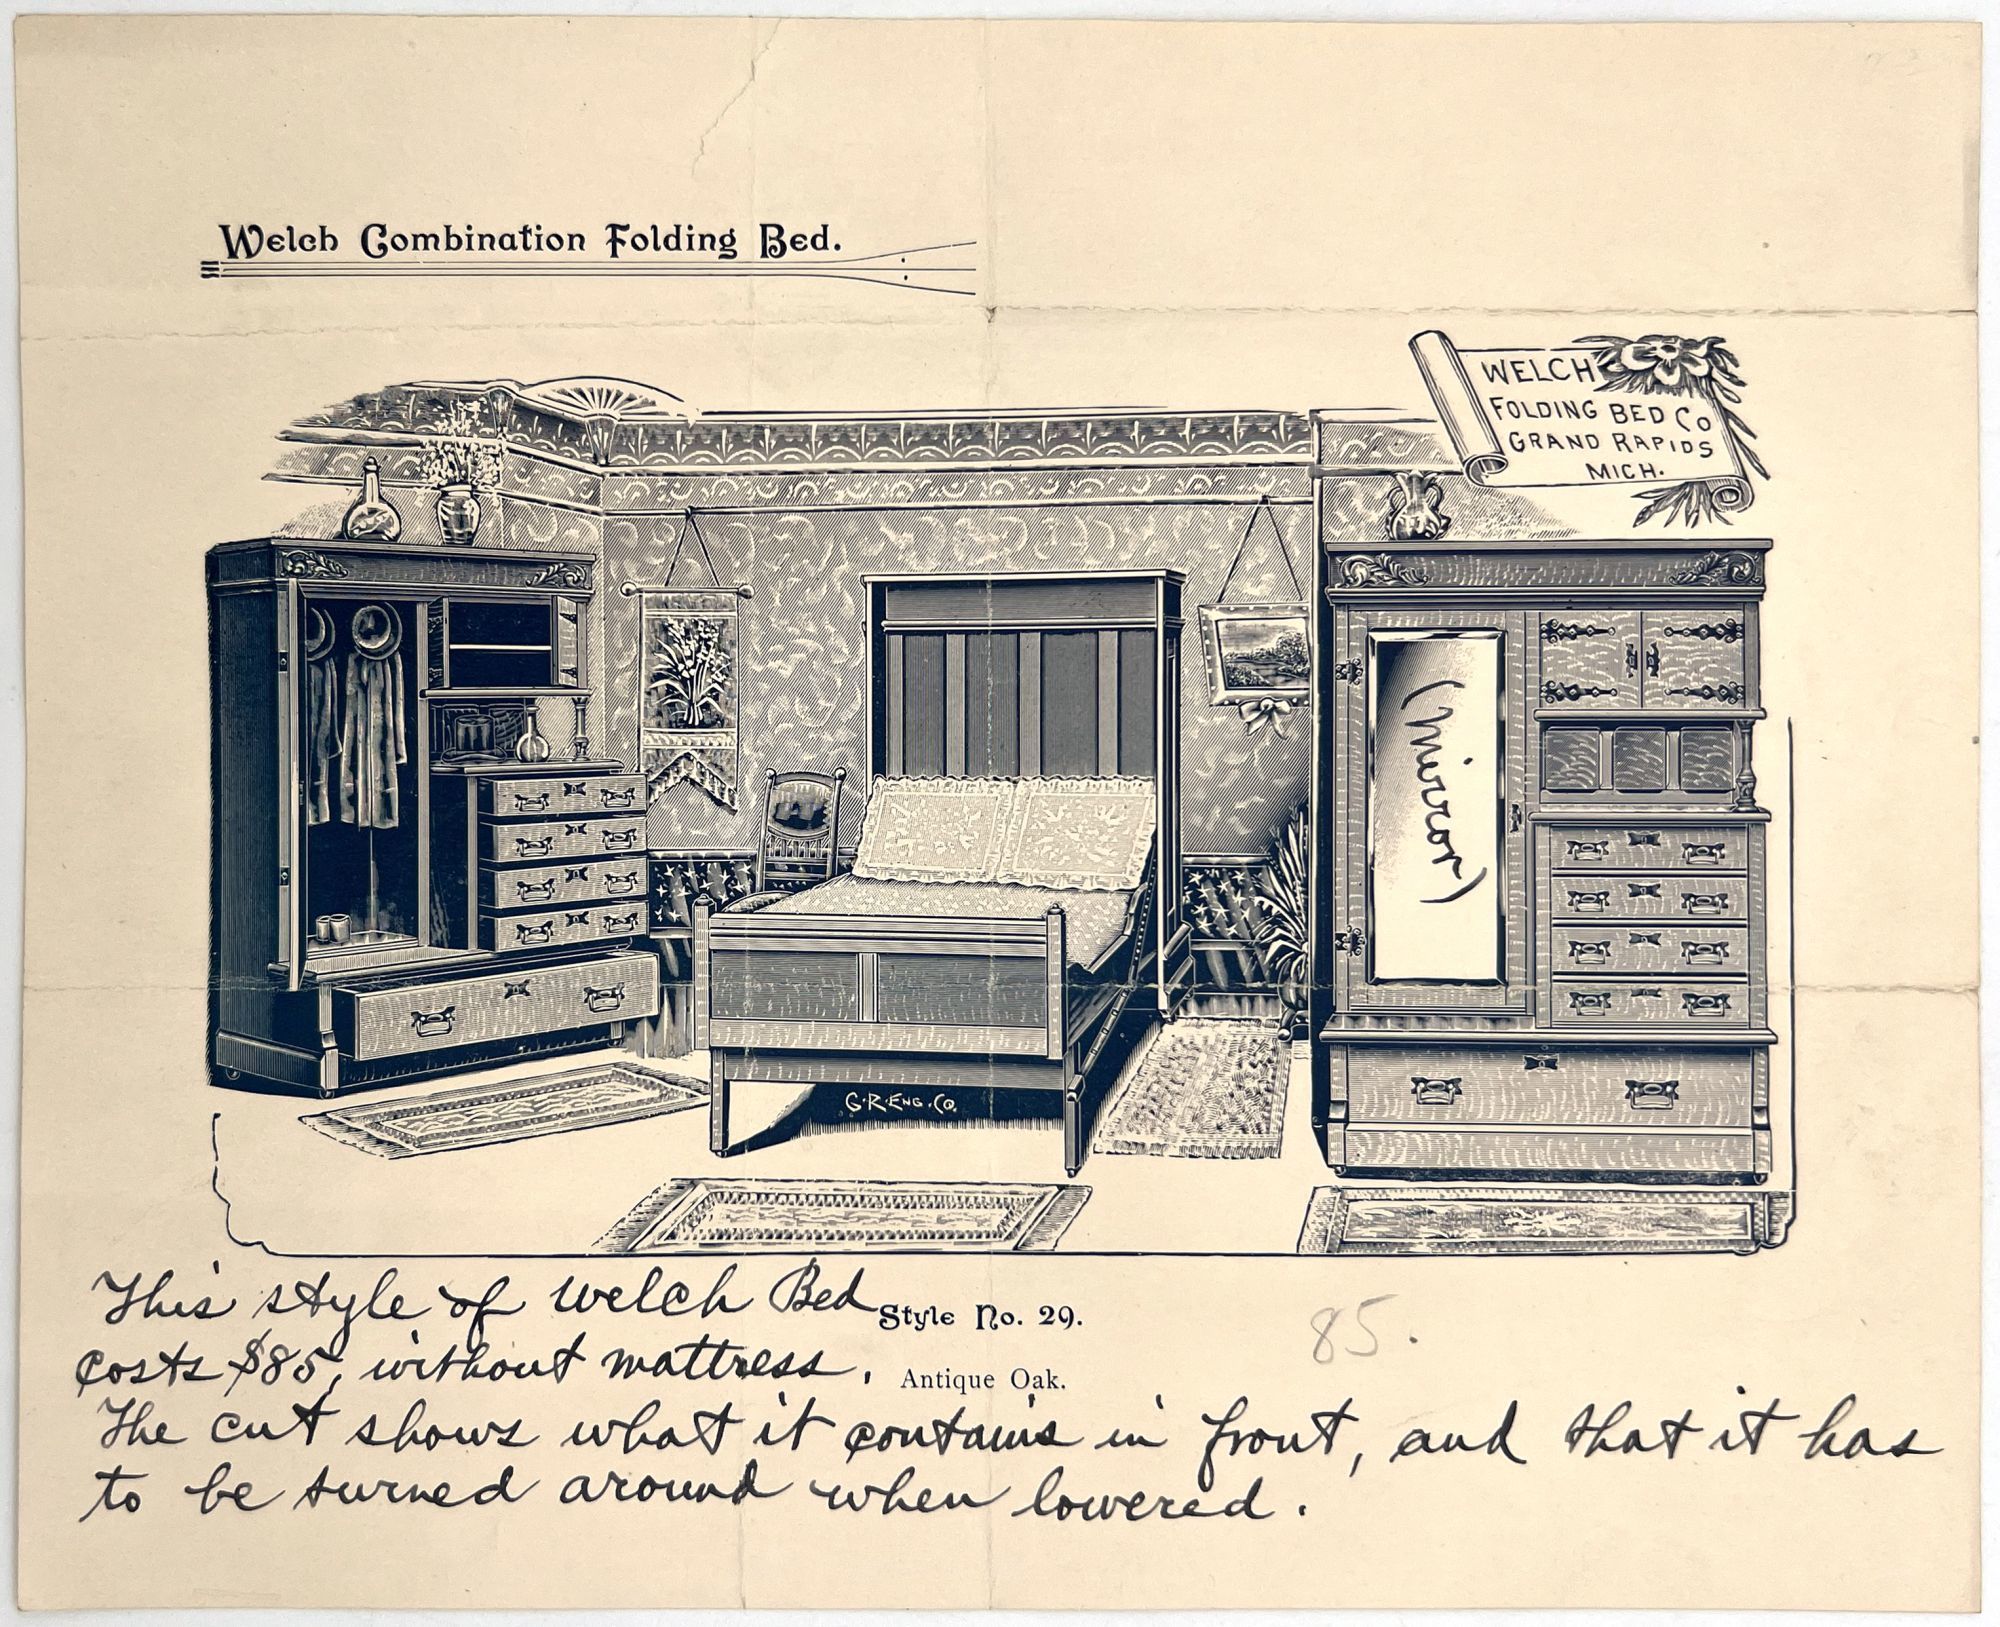 Welch Combination Folding Bed.
WELCH
FOLDING BED CO
GRAND RAPIDS
MICH.
(mirror)
G.R.ENG.CO.
This style of Welch Bed
Style No. 29.
85.
costs $85, without mattress.
Antique Oak.
The cut shows what it contains in front, and that it has
to be turned around when lowered.